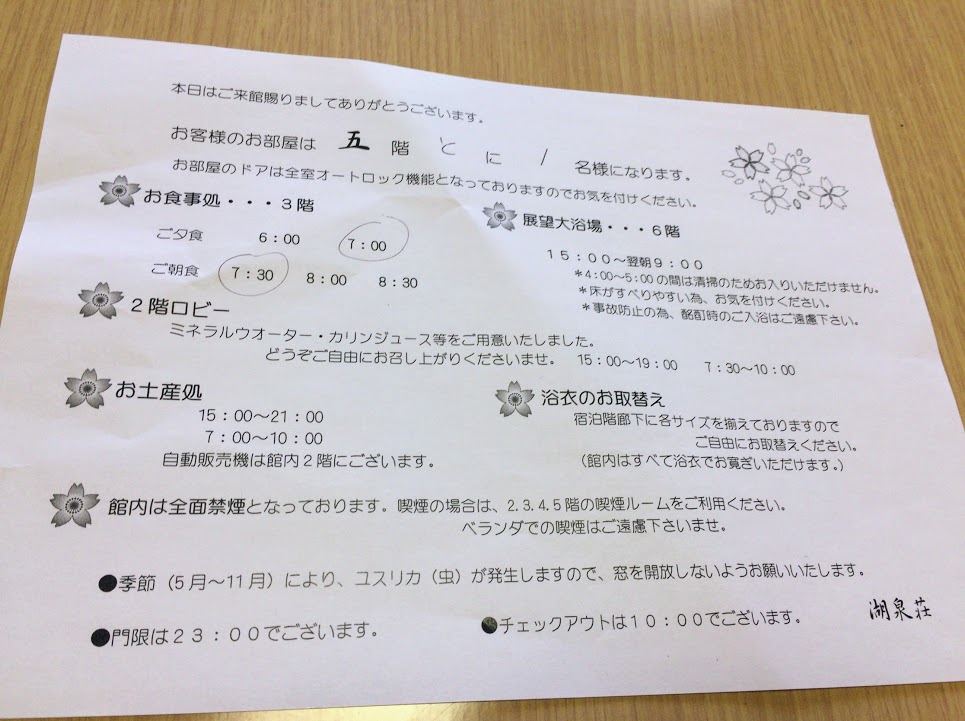 本日はご来館賜りましてありがとうございます。
お客様のお部屋は 五 階 と に / 名様になります。
お部屋のドアは全室オートロック機能となっておりますのでお気を付けください。
お食事処・・・3階
ご夕食 6:00 7:00
ご朝食 7:30 8:00 8:30
展望大浴場・・・6階
15:00～翌朝9:00
＊4:00～5:00の間は清掃のためお入りいただけません。
＊床がすべりやすい為、お気を付けください。
＊事故防止の為、酩酊時のご入浴はご遠慮下さい。
2階ロビー
ミネラルウオーター・カリンジュース等をご用意いたしました。
どうぞご自由にお召し上がりくださいませ。 15:00～19:00 7:30～10:00
お土産処
15:00～21:00
7:00～10:00
自動販売機は館内2階にございます。
浴衣のお取替え
宿泊階廊下に各サイズを揃えておりますので
ご自由にお取替えください。
（館内はすべて浴衣でお寛ぎいただけます。）
館内は全面禁煙となっております。喫煙の場合は、2.3.4.5階の喫煙ルームをご利用ください。
ベランダでの喫煙はご遠慮下さいませ。
●季節（5月～11月）により、ユスリカ（虫）が発生しますので、窓を開放しないようお願いいたします。
●門限は23:00でございます。
●チェックアウトは10:00でございます。
湖泉荘